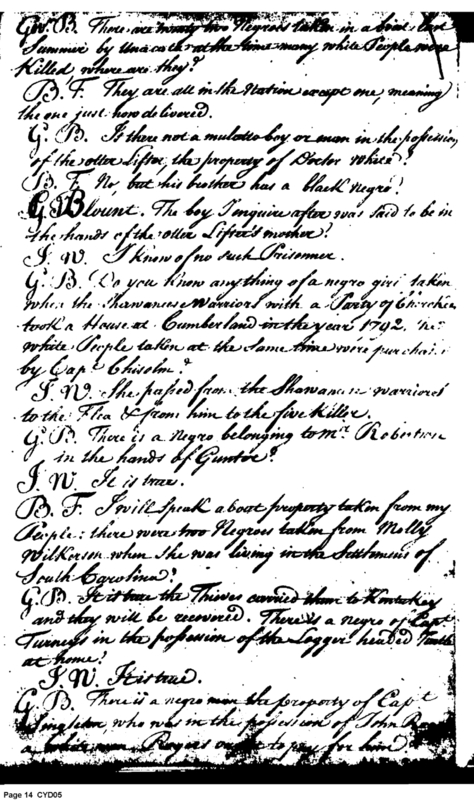 Gov. B. There are twenty two Negroes taken in a boat last
Summer by Unacata at the time many white People were
Killed where are they?
B. F. They are all in the Nation except one, meaning
the one just now delivered.
G. B. Is there not a mulatto boy or man in the possession
of the otter Lifter, the property of Doctor White?
B. F. No, but his brother has a black negro!
G Blount. The boy I enquire after was said to be in
the hands of the otter Lifter's mother?
J. W. I know of no such Prisonner.
G. B. Do you know any thing of a negro girl taken
when the Shawanese Warriors with a Party of Cherokees
took a House at Cumberland in the year 1792. The
white People taken at the same time were purchased
by Capt Chisolm?
J. W. She passed from the Shawanese warriors
to the Flea & from him to the five Killer.
G. B. There is a Negro belonging to Mr. Robertson
in the hands of Gunter?
J. W. It is true.
B. F. I will speak about property taken from my
People: there were two Negroes taken from Molly
Wilkerson when She was living in the Settlement of
South Carolina!
G. B. It is true the Thieves carried them to Kentukey
and they will be recovered. There is a negro of Capt
Turneys in the possession of the Logger headed Turtle
at home?
J. W. It is true.
G. B. There is a negro man the property of Capt
Singleton, who was in the possession of John
a white man Rogers ought to pay for him
Page 14 CYD05